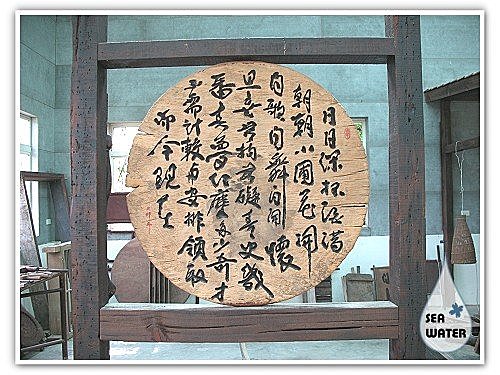 日日深杯酒滿
朝朝小圃花開
自歌自舞自開懷
且喜無拘無礙青史幾
番春夢紅塵多少奇才
不需計較與安排領取
而今現在
SEA
WATER